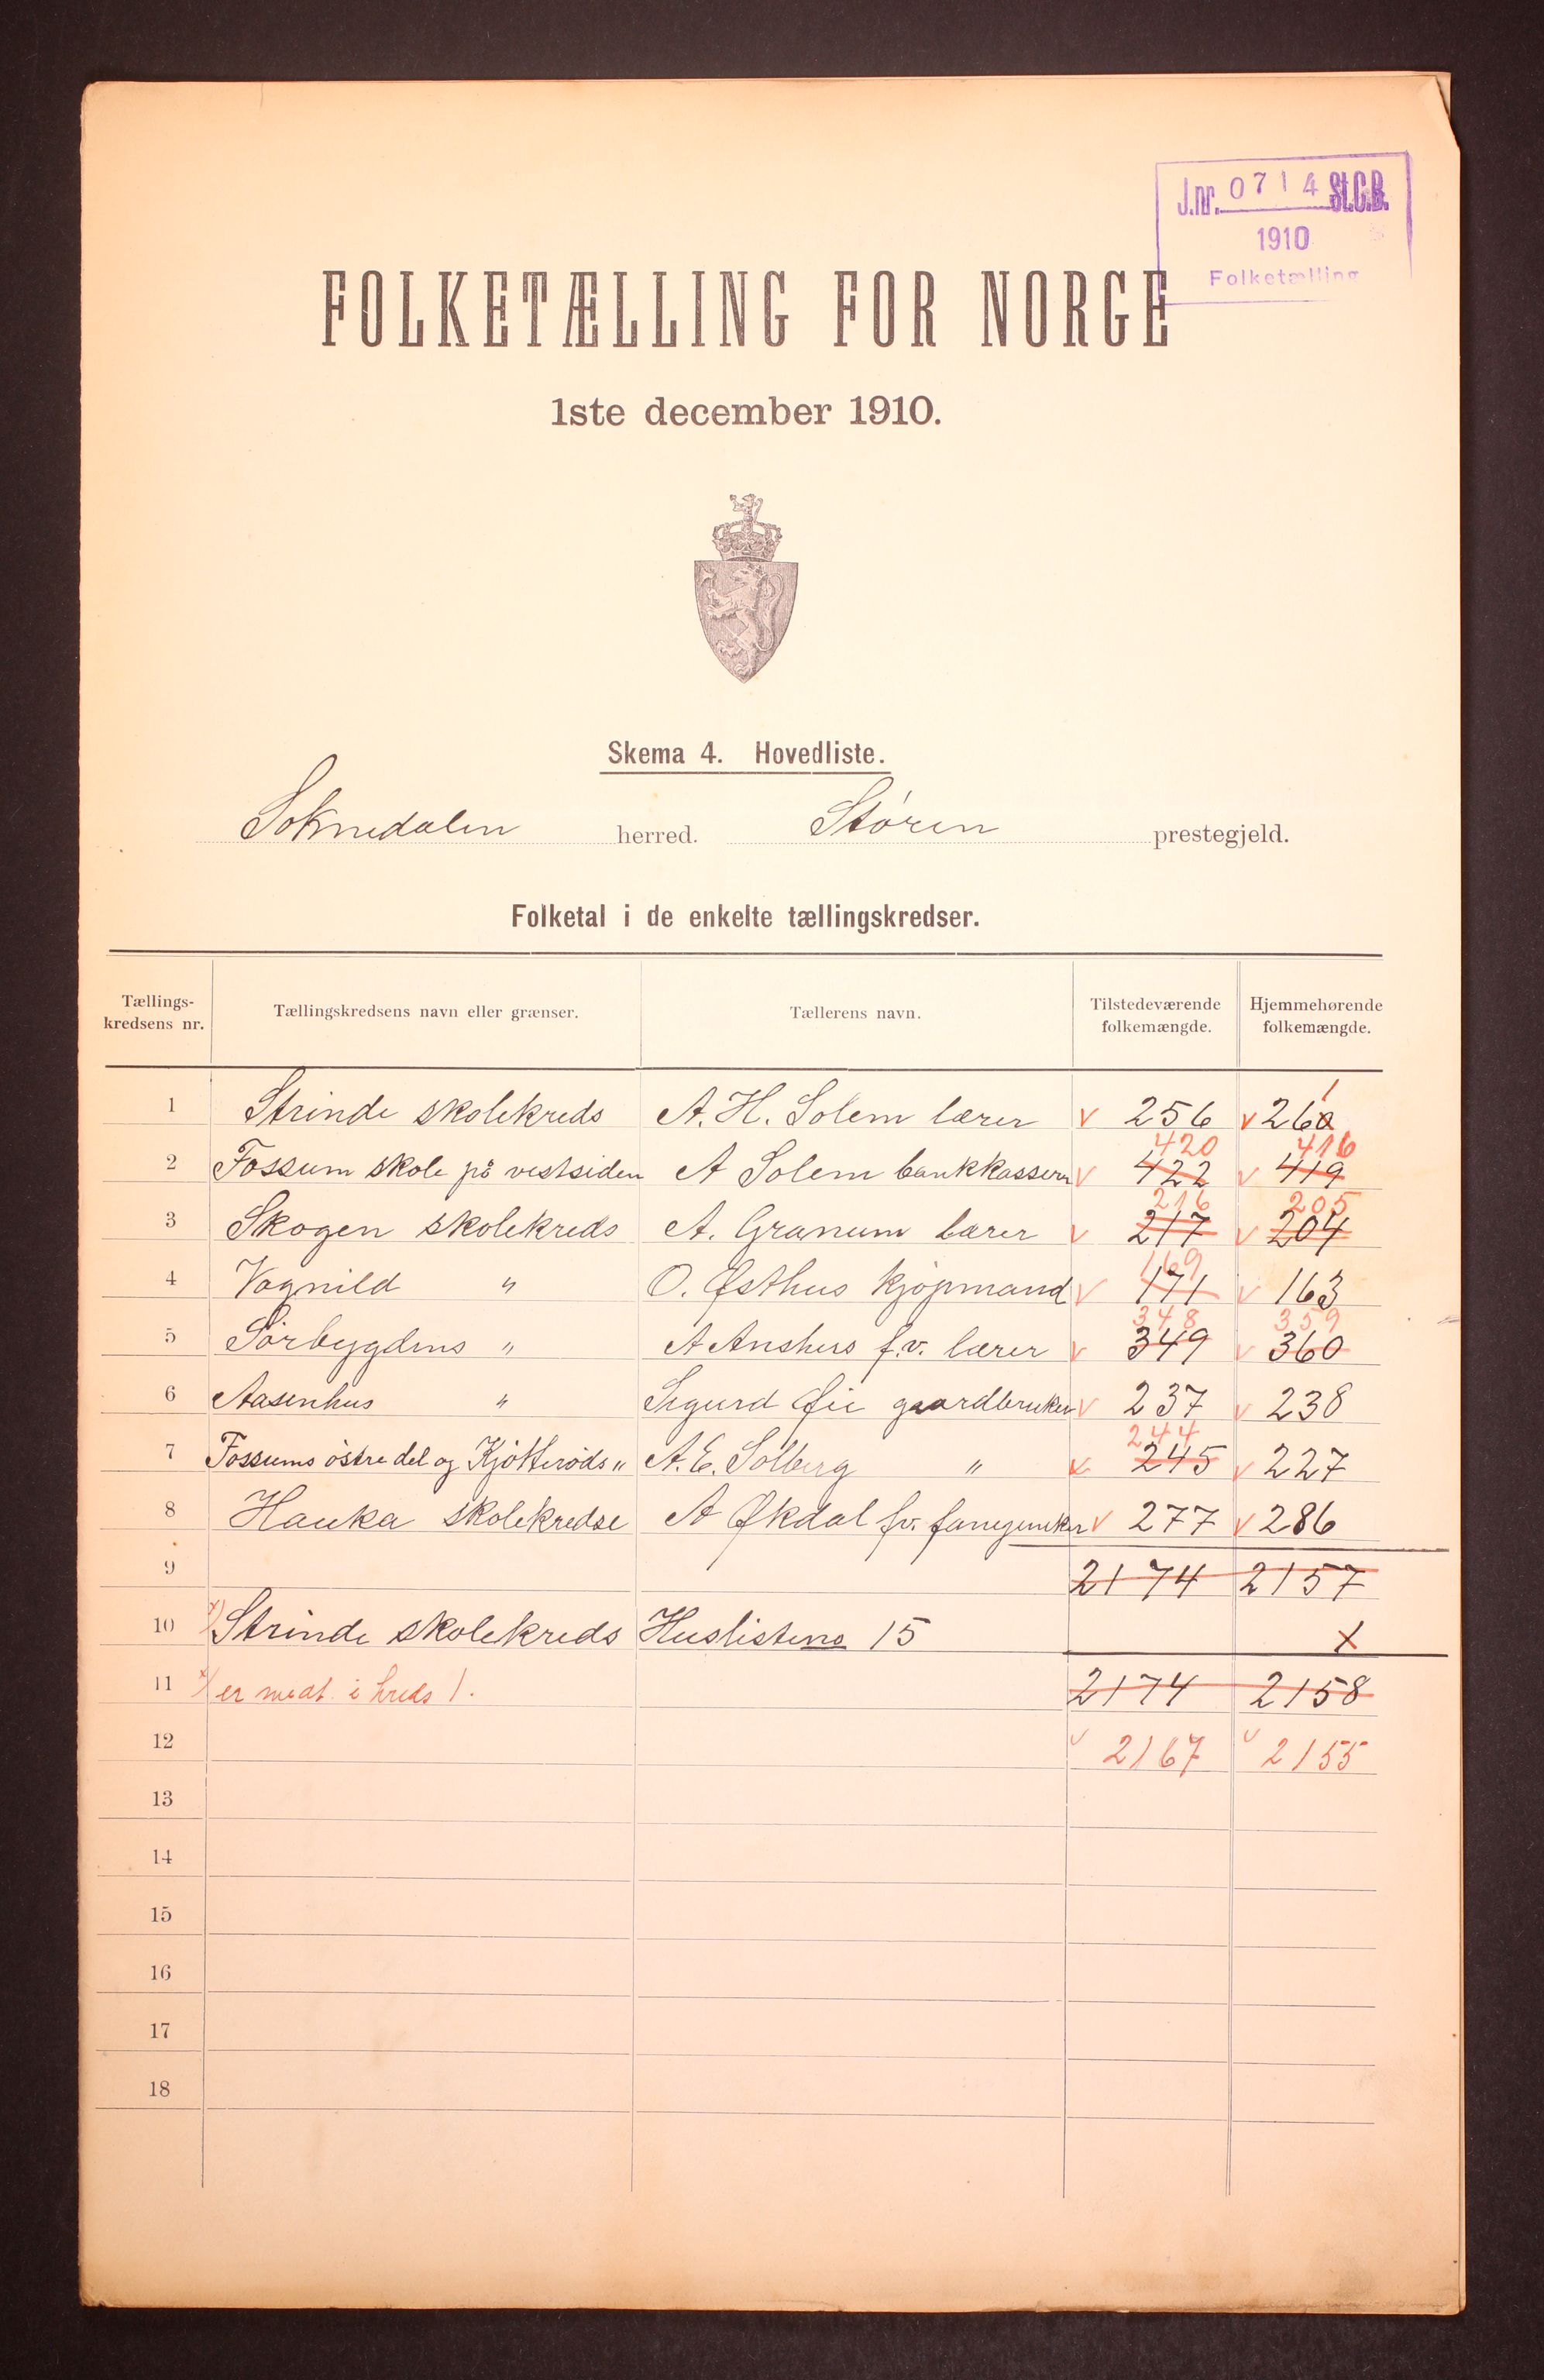 J.nr. 0714 St.C.B.
1910
Folketælling
FOLKETÆLLING FOR NORGE
1ste december 1910.
Skema 4. Hovedliste.
Soknedalen herred. Støren prestegjeld.
Folketal i de enkelte tællingskredser.
Tællings-kredsens nr. Tællingskredsens navn eller grænser. Tællerens navn. Tilstedeværende folkemængde. Hjemmehørende folkemængde.
1
1 Strinde skolekreds A. H. Solem lærer v 256 v 260
420 416
2 Fossum skole på vestsiden A Solem bankkasserer v 422 v 419
216 205
3 Skogen skolekreds A. Granum lærer v 217 v 204
169
4 Vognild " O. Østhus Kjøpmand v 171 v 163
348 359
5 Sörbygdens " A Anshus f.v. lærer v 349 v 360
6 Aasenhus " Sigurd Øie gaardbruker v 237 v 238
244
7 Fossums östre del og Kjötteröds " A. E. Solberg " v 245 v 227
8 Hauka skolekredse A Økdal fv. v 277 v 286
9 2174 2157
10 x) Strinde skolekreds Huslisteno 15 x
11 x) er medt. i kreds 1. 2174 2158
12 v 2167 v 2155
13
14
15
16
17
18